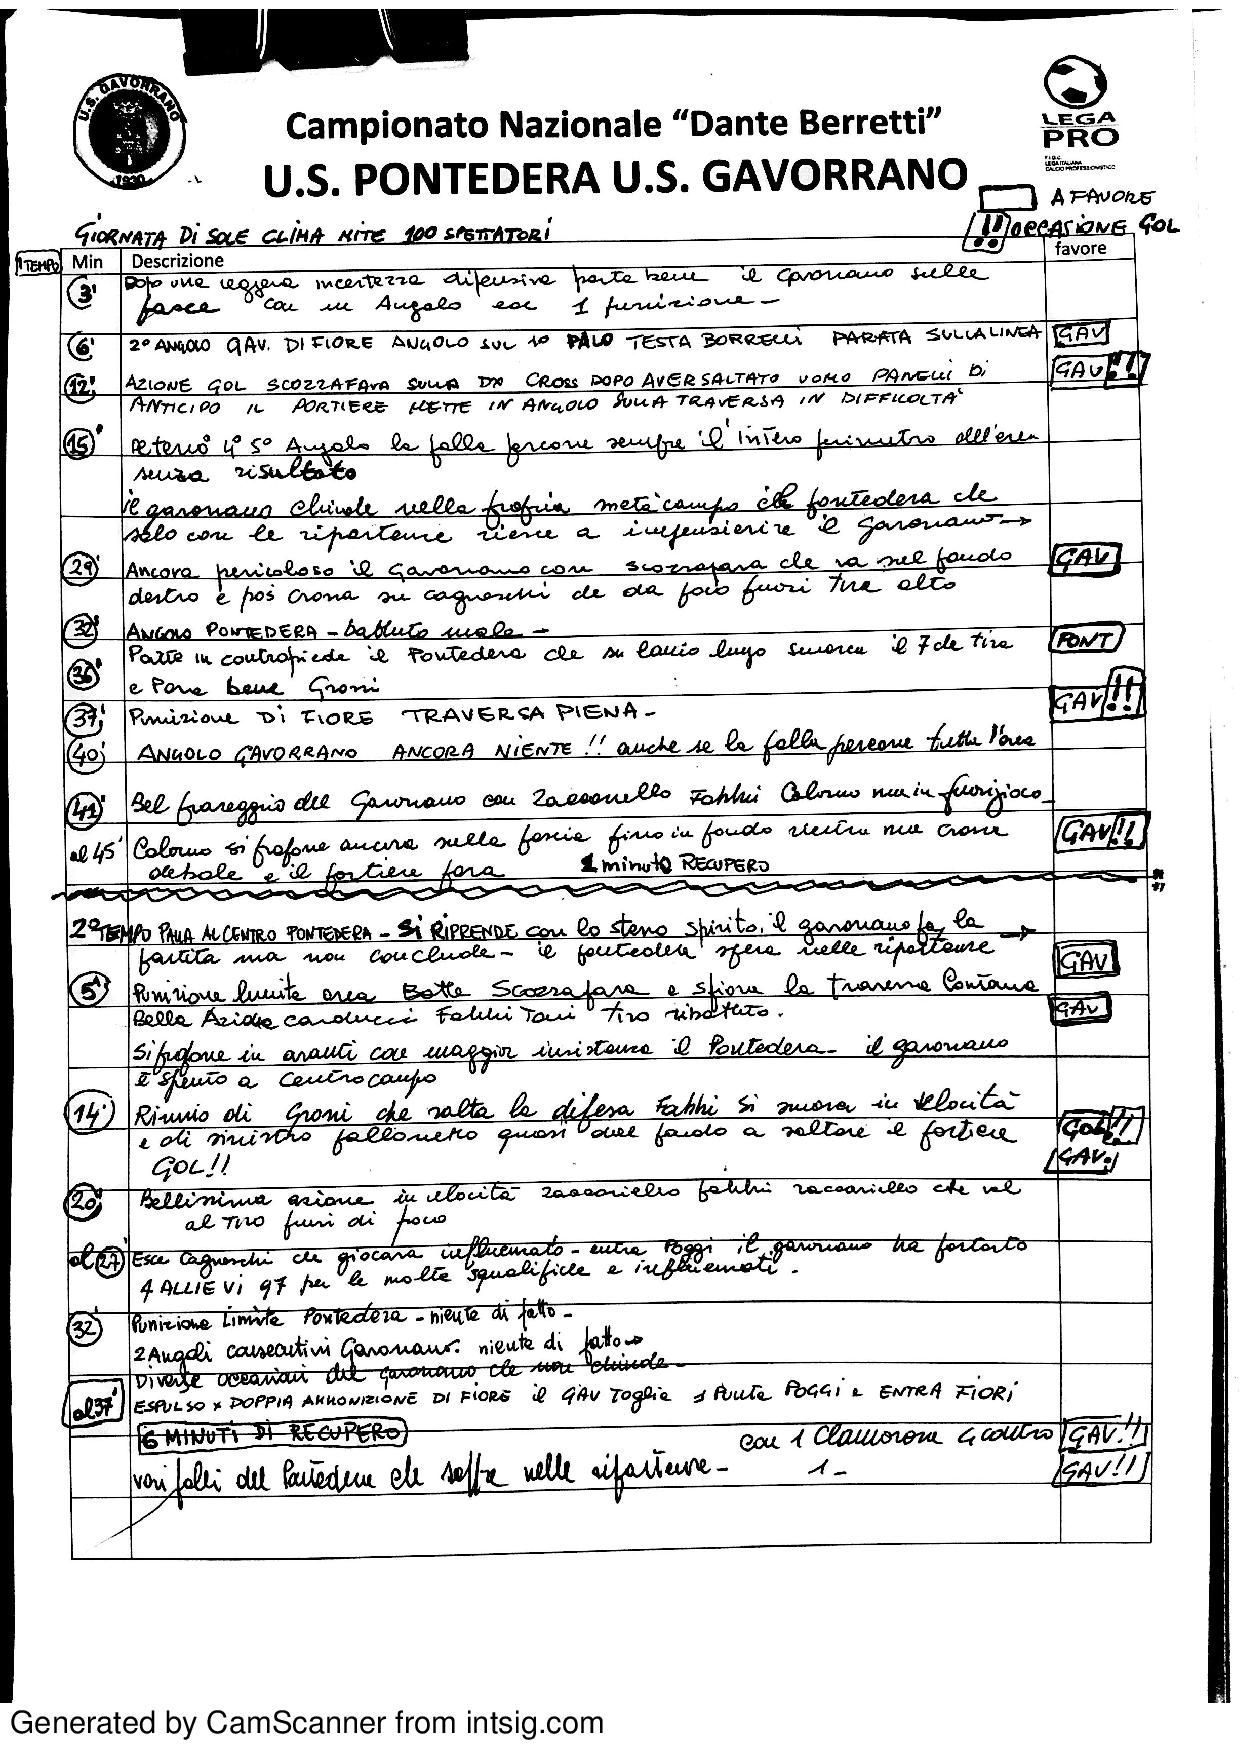 U.S. GAVORRANO
1930
Campionato Nazionale “Dante Berretti”
U.S. PONTEDERA U.S. GAVORRANO
LEGA
PRO
A FAVORE
!! OCCASIONE GOL
GIORNATA DI SOLE CLIMA MITE 100 SPETTATORI
1 TEMPO Min Descrizione favore
3' Dopo una leggera incertezza difensiva parte bene il Gavorrano sulle
fasce con un Angolo 1 punizione -
6' 2° ANGOLO GAV. DI FIORE ANGOLO SUL 1° PALO TESTA BORRELLI PARATA SULLA LINEA GAV
12' AZIONE GOL SCOZZAFAVA SULLA DX CROSS DOPO AVER SALTATO UOMO PANELLI DI GAV!!
ANTICIPO IL PORTIERE METTE IN ANGOLO SULLA TRAVERSA IN DIFFICOLTA'
15' 4° 5° Angolo la palla percorre sempre l'intero perimetro dell'area
senza risultato
il gavorrano chiude nella propria metà campo il pontedera che
solo con le ripartenze riesce a impensierire il Gavorrano →
29' Ancora pericoloso il Gavorrano con scozzafava che va nel fondo GAV
destro e poi crossa su cagneschi che da poco fuori tira alto
32' ANGOLO PONTEDERA - battuto male - PONT
36' Parte in contropiede il Pontedera che su lancio lungo smarca il 7 che tira
e Para bene Groni
37' Punizione DI FIORE TRAVERSA PIENA - GAV!!
40' ANGOLO GAVORRANO ANCORA NIENTE!! anche se la palla percorre tutta l'area
41' Bel fraseggio del Gavorrano con Zaccariello Fabbri Colorno ma in fuorigioco
al 45' Colorno si propone ancora nella fascia fino in fondo ma crossa GAV!!
debole e il portiere para 1 minuto RECUPERO
2° TEMPO PALLA AL CENTRO PONTEDERA - SI RIPRENDE con lo stesso spirito, il gavorrano fa la →
partita ma non conclude - il pontedera spera nelle ripartenze GAV
5' Punizione limite area Batte Scozzafava e sfiora la traversa
Bella Azione carducci Fabbri Toni tiro ribattuto. GAV
Si propone in avanti con maggior insistenza il Pontedera - il gavorrano
è spento a centrocampo
14' Rinvio di Groni che salta la difesa Fabbri si smarca in velocità GOL!!
e di sinistro pallonetto quasi dal fondo a saltare il portiere GAV.
GOL!!
20' Bellissima azione in velocità Zaccariello fabbri zaccariello che va
al tiro fuori di poco
al 27' Esce Cagneschi che giocava influenzato - entra Poggi il gavorrano ha portato
4 ALLIEVI 97 per le molte squalifiche e influenzati.
32' Punizione Limite Pontedera - niente di fatto -
2 Angoli consecutivi Gavorrano. niente di fatto
Diverse occasioni del gavorrano che non chiude -
al 37' ESPULSO x DOPPIA AMMONIZIONE DI FIORE il GAV Toglie 1 Punta POGGI e ENTRA FIORI
6 MINUTI DI RECUPERO con 1 Clamorosa 4 contro GAV!!
vari falli del Pontedera che soffre nelle ripartenze - 1 - GAV!!
Generated by CamScanner from intsig.com